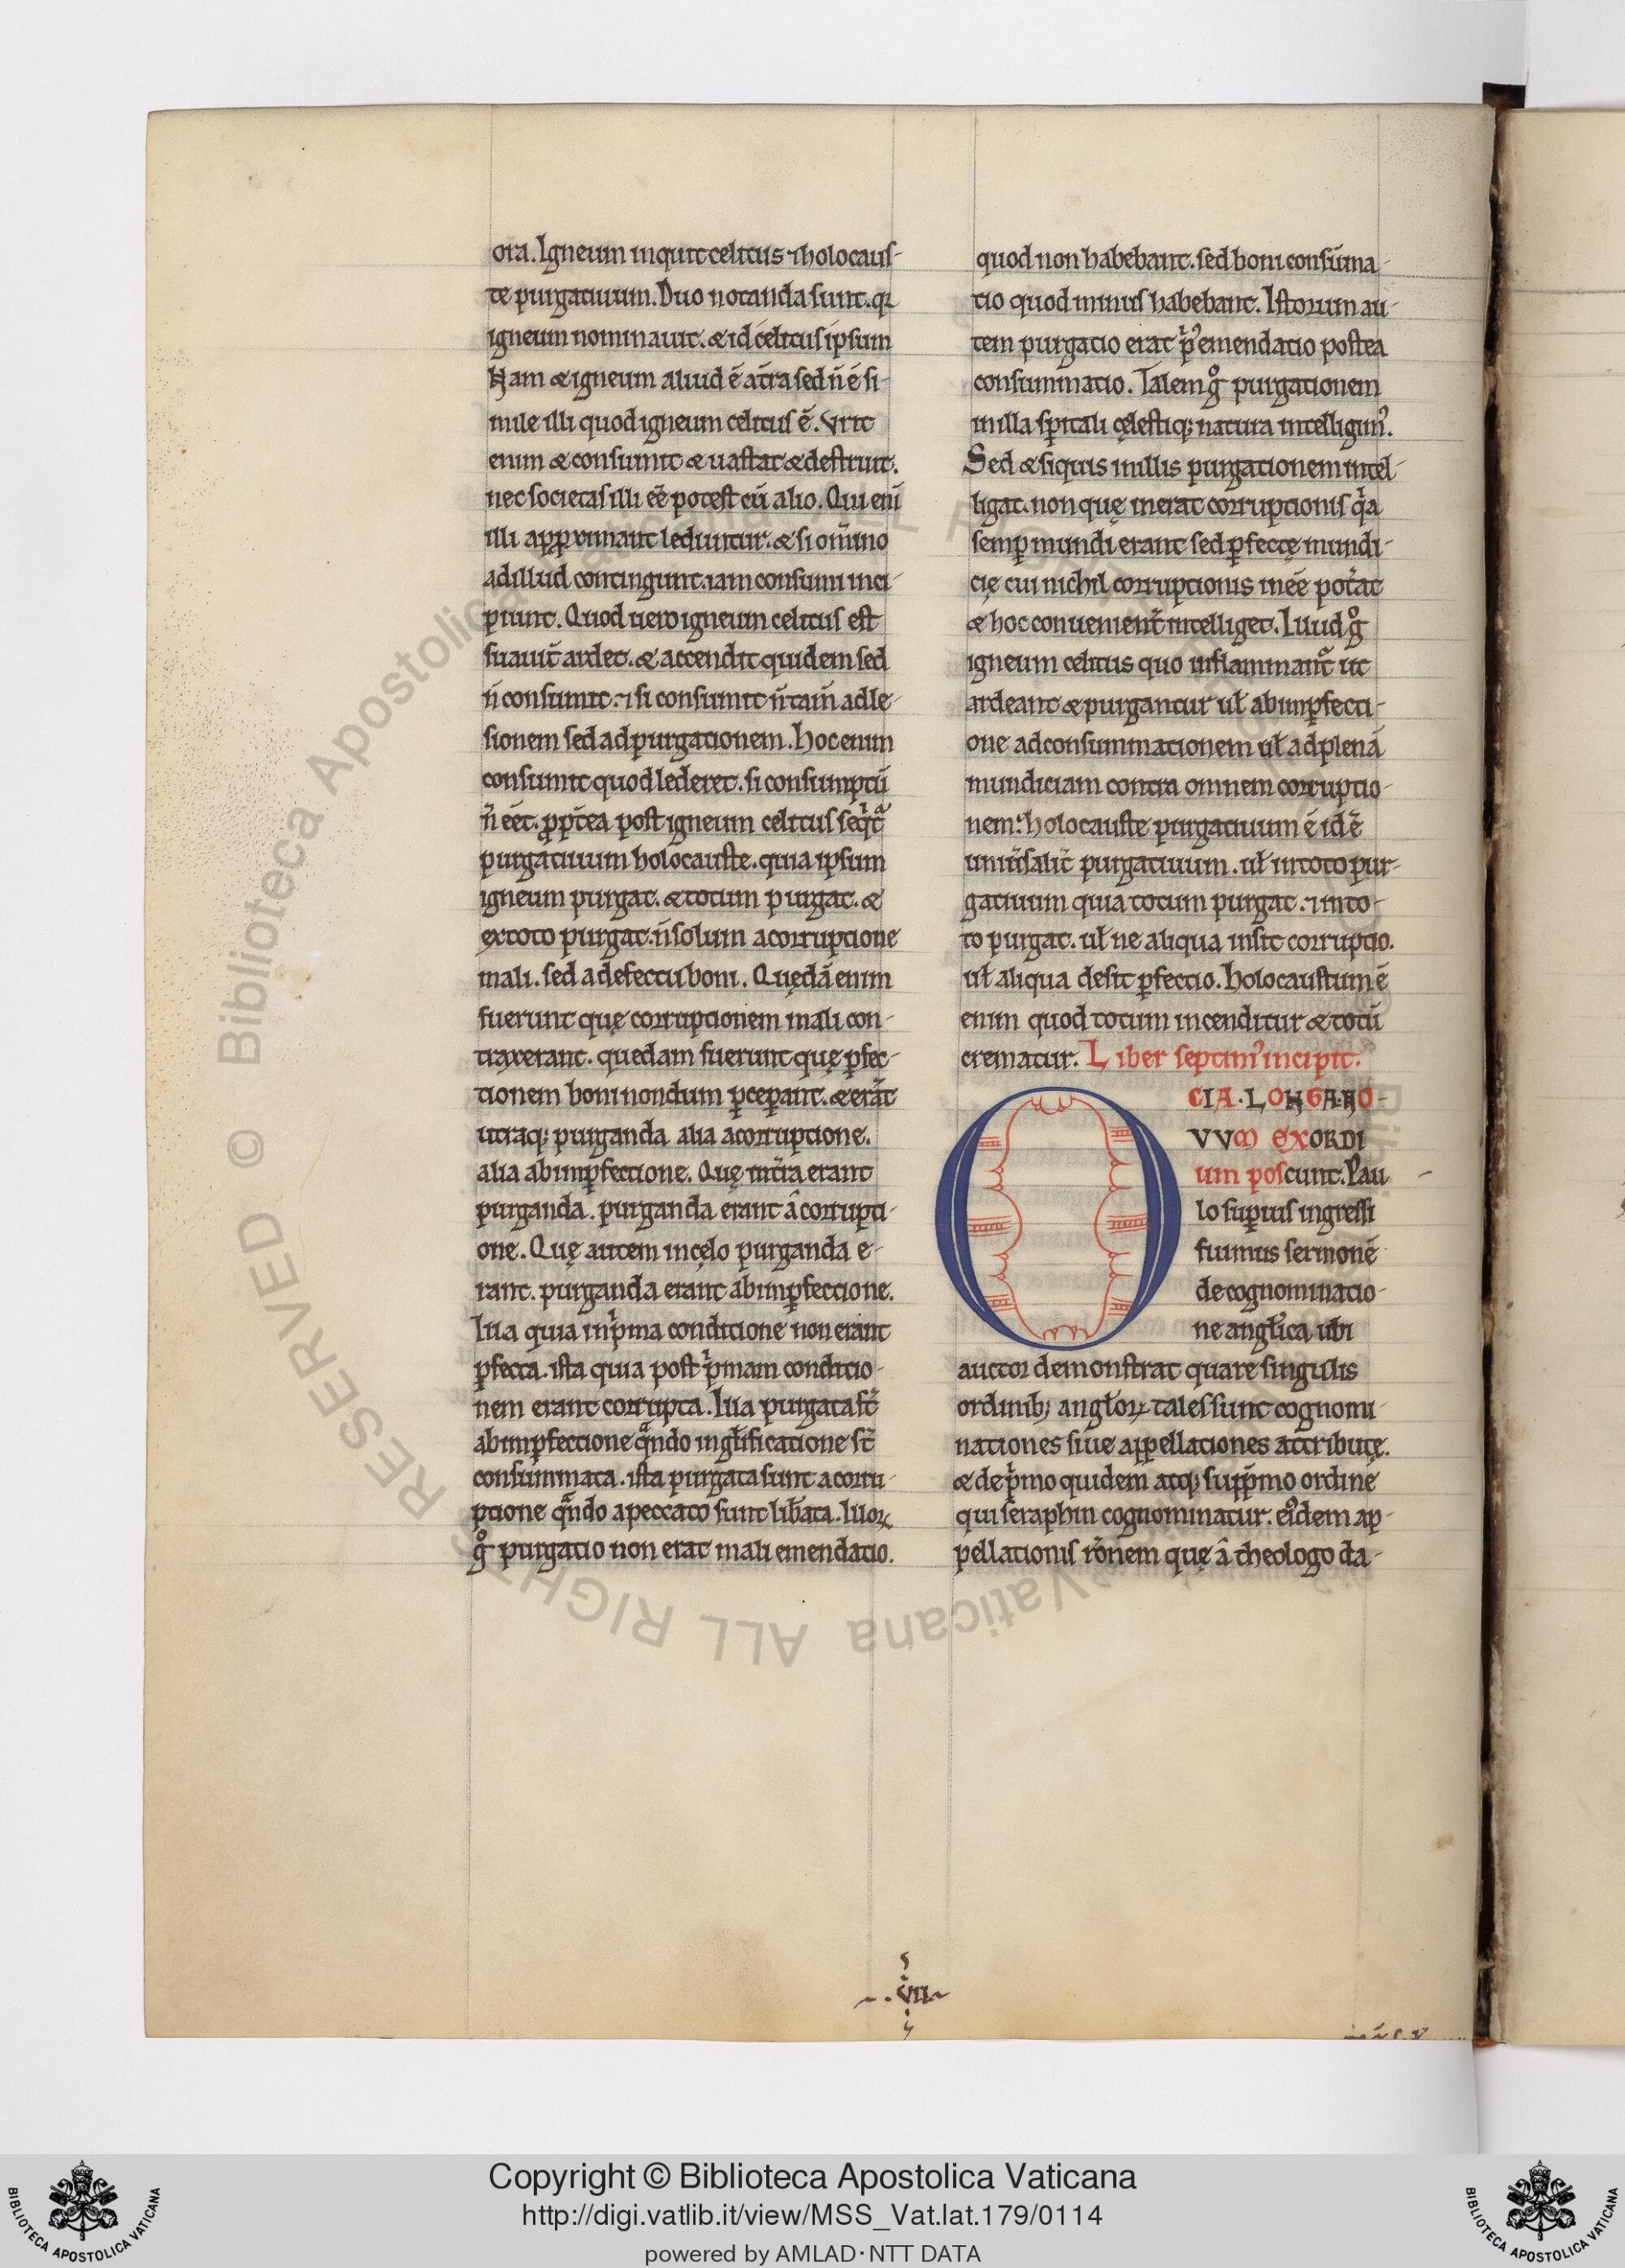 ora. Igneum inquit celitus ⁊ holocaus-
te purgatiuum. Duo notanda sunt. qꝛ
igneum nominauit. & id celitus ipsum
Nam & igneum aliud ē at̄ra sed n̄ ē si-
mile illi quod igneum celitus ē. Vrit
enim & consumit & uastat & destruit.
nec societas illi eē potest cū alio. Qui eni̅
illi aꝓꝓximant leduntur. & si om̄ino
ad illud contingunt. iam consumi inci-
piunt. Quod uero igneum celitus est
suauit̄ ardet. & accendit quidem sed
n̄ consumit. ⁊ si consumit n̄ tam̄ ad le-
sionem sed ad purgationem. Hoc enim
consumit quod lederet. si consumptū
n̄ eēt. ꝓpt̄ea post igneum celitus seqͥtᷓ
purgatiuum holocauste. quia ipsum
igneum purgat. & totum purgat. &
ex toto purgat. n̄ solum a corruptione
mali. sed a defectu boni. Quędā enim
fuerunt quę corruptionem mali con-
traxerant. quedam fuerunt quę ꝑfec-
tionem boni nondum ꝑceꝑant. & erāt
utraqꝫ purganda alia a corruptione.
alia ab inꝑfectione. Quę in t̄ra erant
purganda. purganda erant a corrupti-
one. Quę autem in cęlo purganda e-
rant. purganda erant ab inꝑfectione.
Illa quia in pͥma conditione non erant
ꝑfecta. ista quia post pͥmam conditio-
nem erant corrupta. Illa purgata st̄
ab inꝑfectione qᷓndo in gl̄ificatione st̄
consummata. ista purgata sunt a corru-
ptione qᷓndo a peccato sunt lib̄ata. Illoꝝ
gͦ purgatio non erat mali emendatio.
quod non habebant. sed boni consu̅ma-
tio quod minus habebant. Istorum au-
tem purgatio erat pͥꝰ emendatio postea
consummatio. Talem gͦ purgationem
in illa sp̄itali cęlestiqꝫ natura intelligimꝰ.
Sed & siquis in illis purgationem intel-
ligat. non quę inerat corruptionis qͥa
semꝑ mundi erant sed ꝑfectę mundi-
cię cui nichil corruptionis ineē pot̄at
& hoc conuenient̄ intelliget. Illud gͦ
igneum celitus quo inflammant᷑ ut
ardeant & purgantur ul̄ ab inꝑfecti-
one ad consummationem ul̄ ad plenā
mundiciam contra omnem corruptio-
nem. holocauste purgatiuum ē id ē
uniu̅salit̄ purgatiuum. ul̄ in toto pur-
gatiuum quia totum purgat. ⁊ in to-
to purgat. ul̄ ne aliqua insit corruptio.
ul̄ aliqua desit ꝑfectio. Holocaustum ē
enim quod totum incenditur & totū
crematur. Liber septimꝰ incipit.
OCIA. LONGA. NO-
VVM EXORDI
um poscunt. Pau
lo suꝑius ingressi
fuimus sermonē
de cognominatio-
ne angl̄ica, ubi
auctor demonstrat quare singulis
ordinibꝫ angl̄oꝝ tales sunt cognomi-
nationes siue appellationes attributę.
& de pͥmo quidem atqꝫ supp̄mo ordine
qui seraphin cognominatur. eiꝰdem ap-
pellationis rōnem quę a theologo da-
.VII.
Copyright © Biblioteca Apostolica Vaticana
http://digi.vatlib.it/view/MSS_Vat.lat.179/0114
powered by AMLAD · NTT DATA
BIBLIOTECA APOSTOLICA VATICANA
BIBLIOTECA APOSTOLICA VATICANA
© Biblioteca Apostolica Vaticana ALL RIGHTS RESERVED